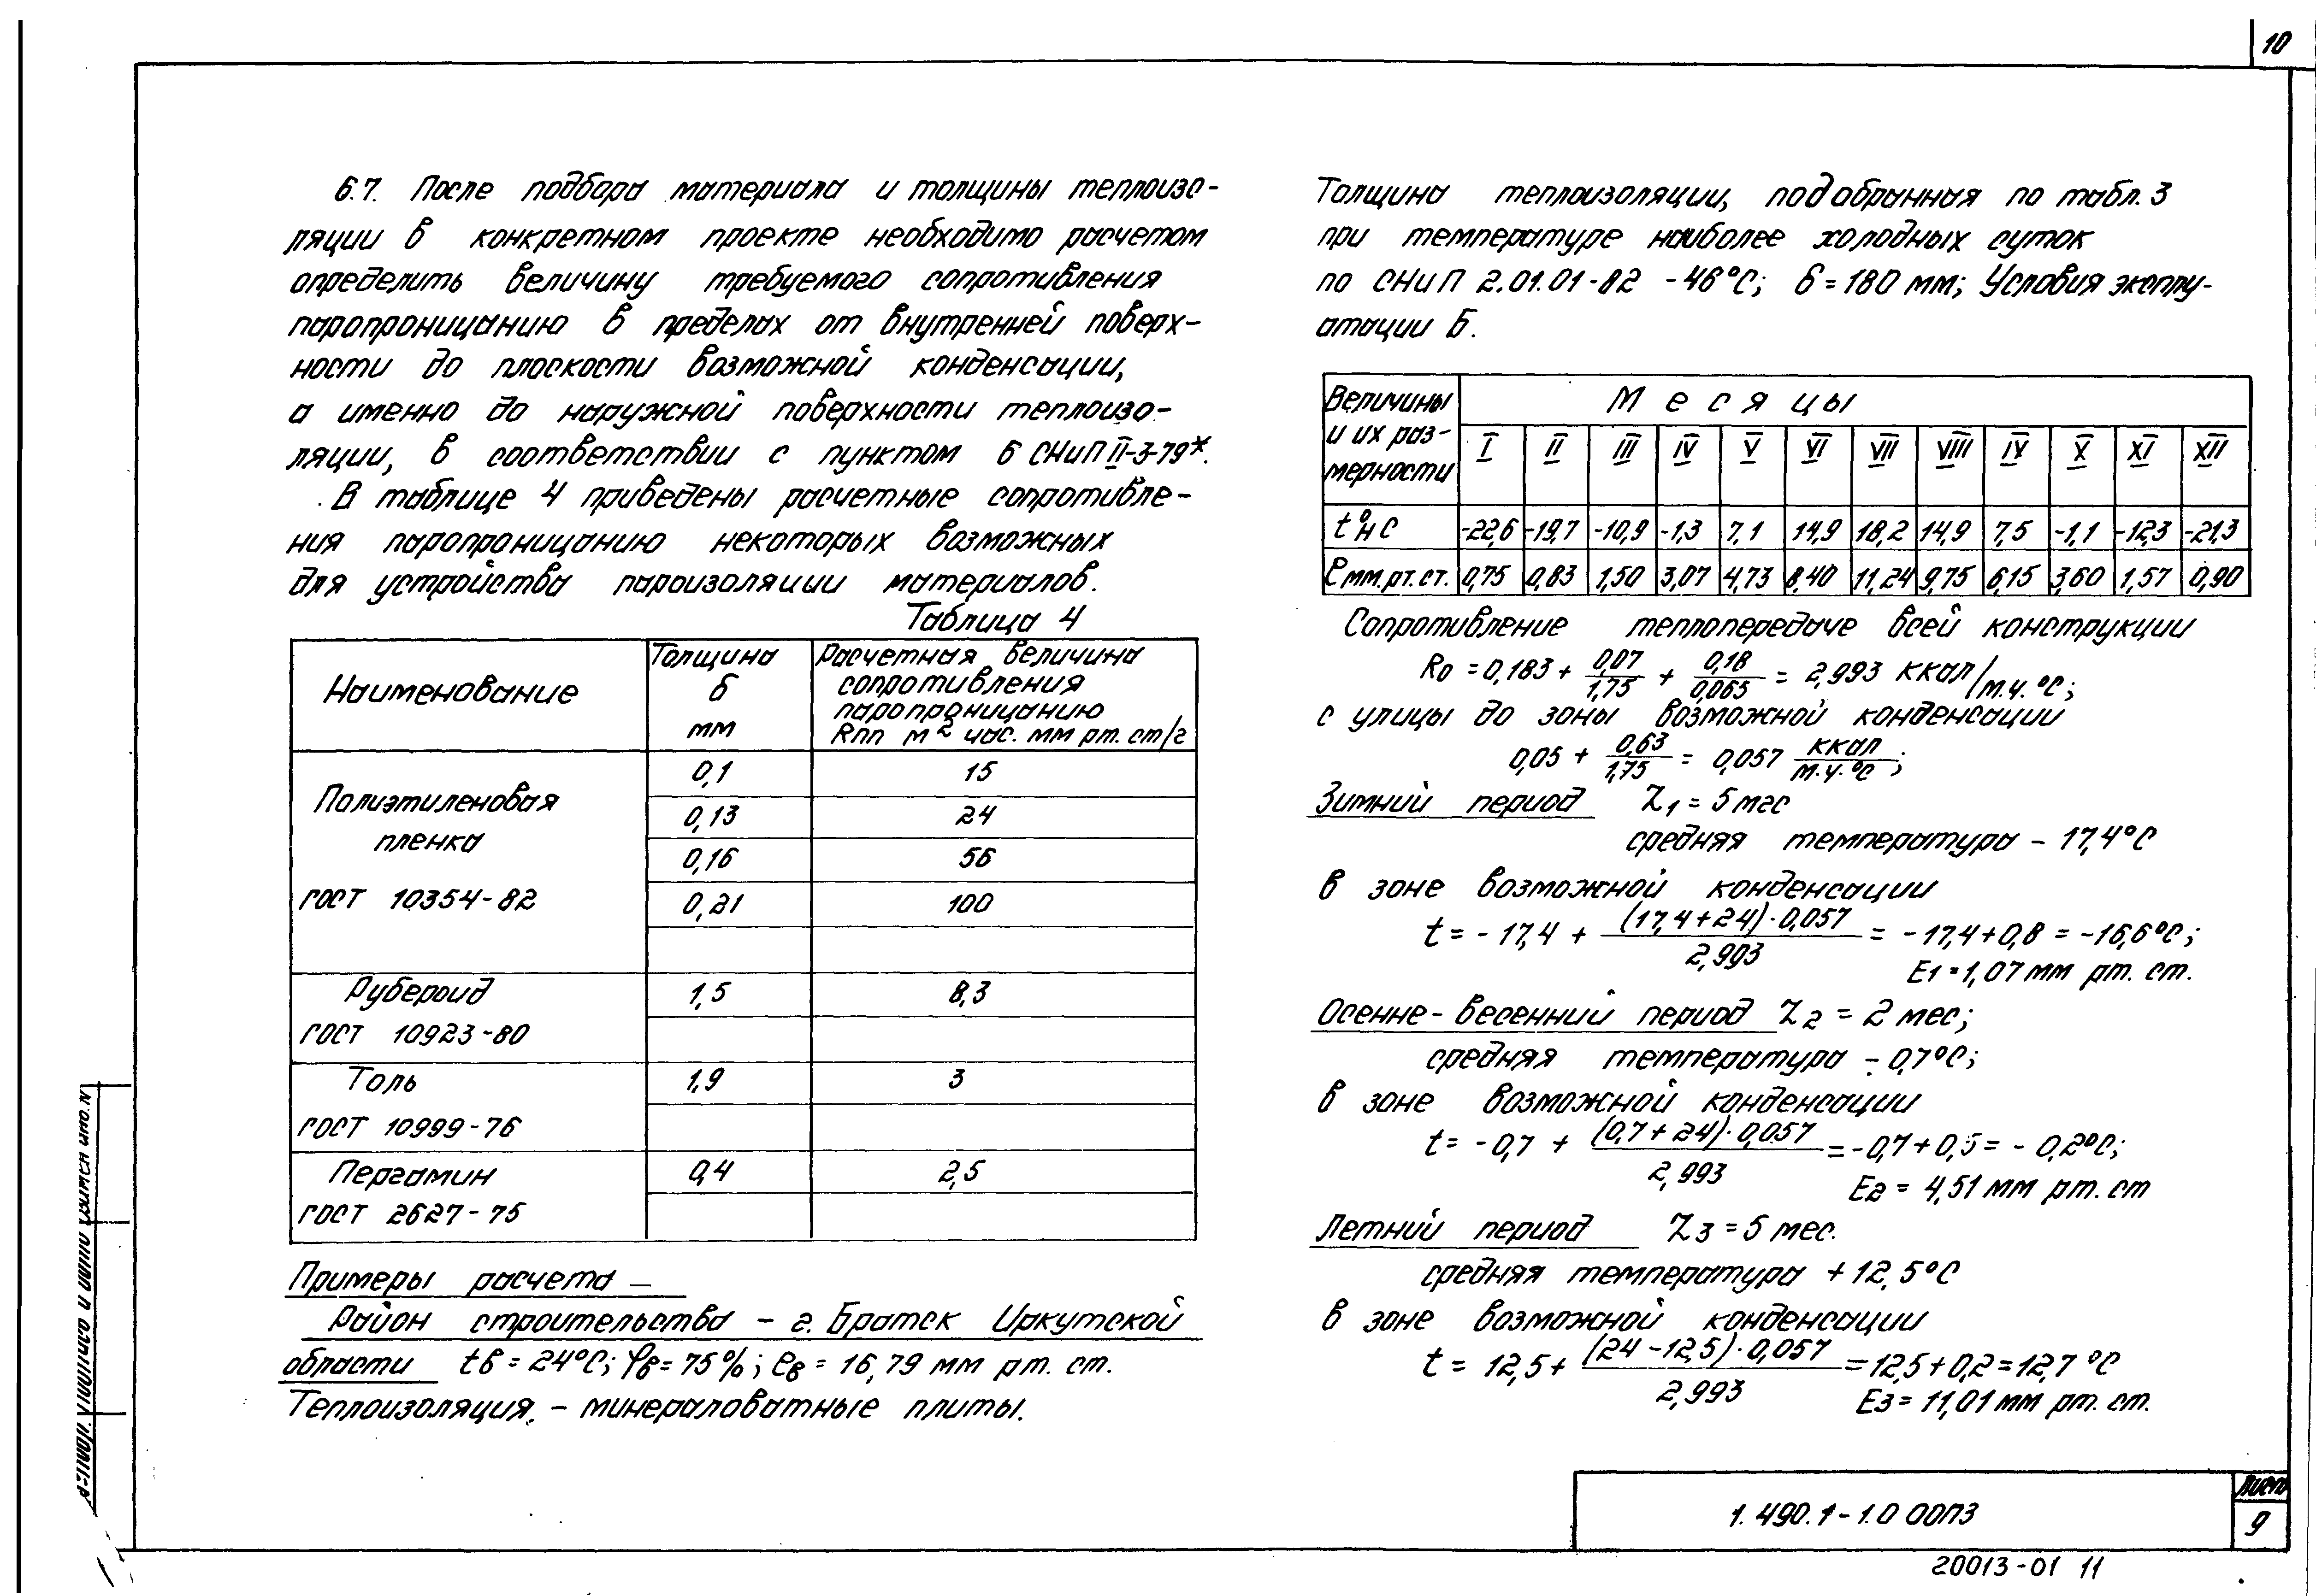 10
6.7. После подбора материала и толщины теплоизо-
ляции в конкретном проекте необходимо расчетом
определить величину требуемого сопротивления
паропроницанию в пределах от внутренней поверх-
ности до плоскости возможной конденсации,
а именно до наружной поверхности теплоизо-
ляции, в соответствии с пунктом 6 СНиП II-3-79*.
В таблице 4 приведены расчетные сопротивле-
ния паропроницанию некоторых возможных
для устройства пароизоляции материалов.
Таблица 4
Наименование | Толщина δ мм | Расчетная величина сопротивления паропроницанию Rпп м² час. мм рт. ст/г
Полиэтиленовая пленка ГОСТ 10354-82 | 0,1 | 15
0,13 | 24
0,16 | 56
0,21 | 100
Рубероид ГОСТ 10923-80 | 1,5 | 8,3
Толь ГОСТ 10999-76 | 1,9 | 3
Пергамин ГОСТ 2627-75 | 0,4 | 2,5
Примеры расчета —
Район строительства - г. Братск Иркутской
области tв = 24°С; φв = 75%; eв = 16,79 мм рт. ст.
Теплоизоляция - минераловатные плиты.
Толщина теплоизоляции, подобранная по табл. 3
при температуре наиболее холодных суток
по СНиП 2.01.01-82 -46°С; δ = 180 мм; Условия эксплу-
атации Б.
Величины и их раз- мерности | Месяцы
I | II | III | IV | V | VI | VII | VIII | IX | X | XI | XII
t°н С | -22,6 | -19,7 | -10,9 | -1,3 | 7,1 | 14,9 | 18,2 | 14,9 | 7,5 | -1,1 | -12,3 | -21,3
e мм.рт.ст. | 0,75 | 0,83 | 1,50 | 3,07 | 4,73 | 8,40 | 11,24 | 9,75 | 6,15 | 3,60 | 1,57 | 0,90
Сопротивление теплопередаче всей конструкции
Rо = 0,183 + 0,07/1,75 + 0,18/0,065 = 2,993 ккал/м.ч.°С;
с улицы до зоны возможной конденсации
0,05 + 0,63/1,75 = 0,057 ккал/м.ч.°С;
Зимний период Z1 = 5 мес
средняя температура - 17,4°С
в зоне возможной конденсации
t = - 17,4 + (17,4+24)·0,057/2,993 = -17,4+0,8 = -16,6°С;
E1 = 1,07 мм рт. ст.
Осенне-весенний период Z2 = 2 мес;
средняя температура - 0,7°С;
в зоне возможной конденсации
t = - 0,7 + (0,7+24)·0,057/2,993 = -0,7+0,5 = - 0,2°С;
E2 = 4,51 мм рт. ст
Летний период Z3 = 5 мес.
средняя температура + 12,5°С
в зоне возможной конденсации
t = 12,5 + (24-12,5)·0,057/2,993 = 12,5+0,2 = 12,7 °С
E3 = 11,01 мм рт. ст.
1.490.1-1.0 00ПЗ
Лист
9
20013-01 11